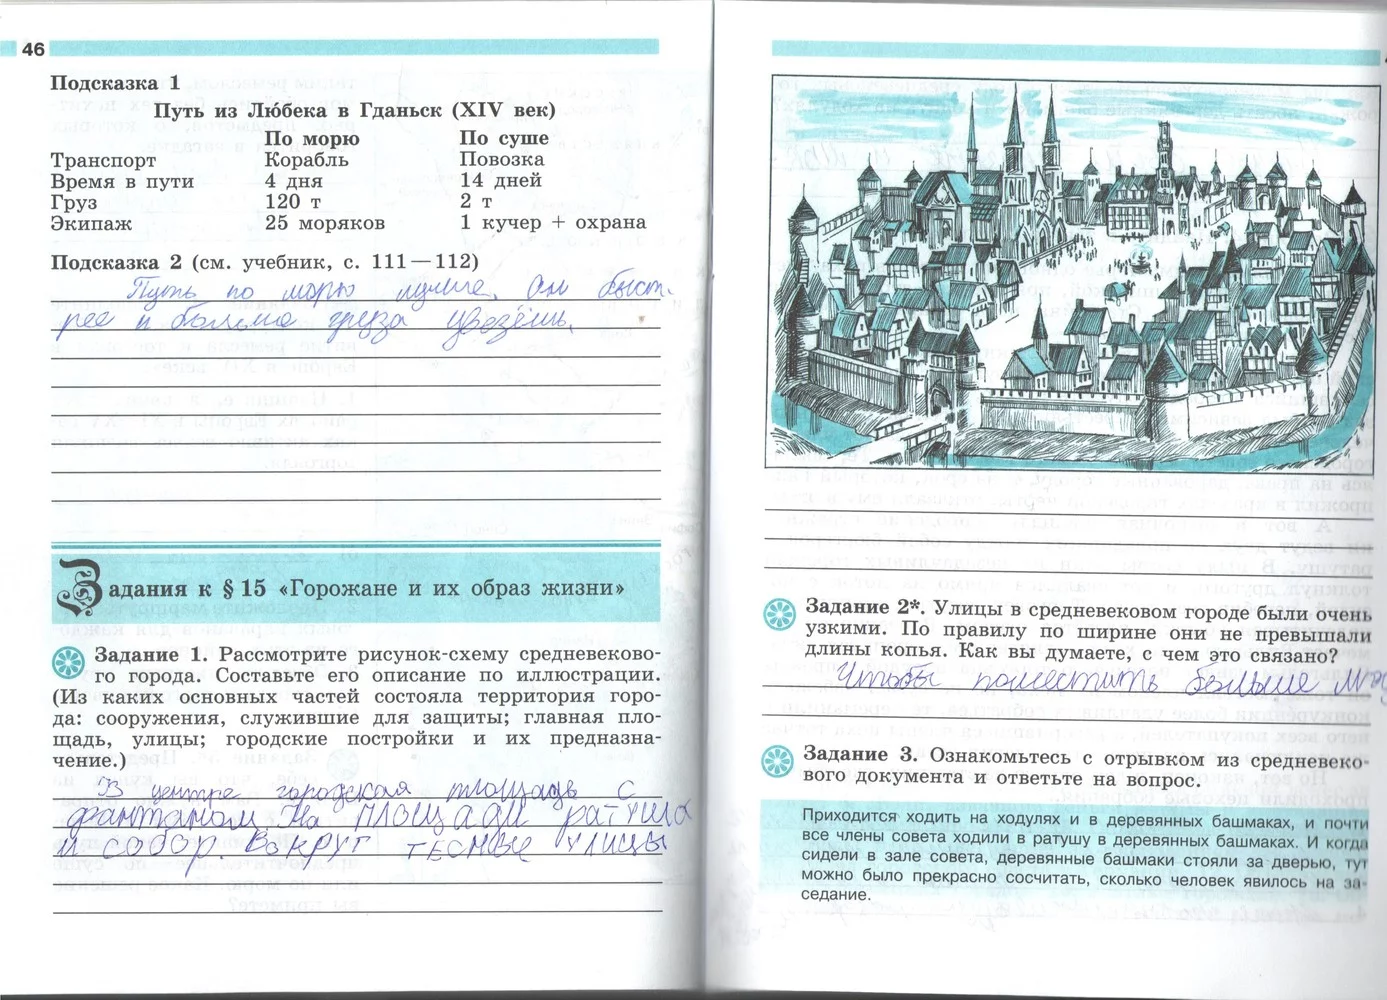 46
Подсказка 1
Путь из Любека в Гданьск (XIV век)
По морю По суше
Транспорт Корабль Повозка
Время в пути 4 дня 14 дней
Груз 120 т 2 т
Экипаж 25 моряков 1 кучер + охрана
Подсказка 2 (см. учебник, с. 111—112)
Путь по морю лучше. Он быст-
рее и больше груза увезёшь.
Задания к § 15 «Горожане и их образ жизни»
Задание 1. Рассмотрите рисунок-схему средневеково-
го города. Составьте его описание по иллюстрации.
(Из каких основных частей состояла территория горо-
да: сооружения, служившие для защиты; главная пло-
щадь, улицы; городские постройки и их предназна-
чение.)
В центре городская площадь с
фантаном. На площади ратуша
и собор Вокруг тесные улицы
Задание 2*. Улицы в средневековом городе были очень
узкими. По правилу по ширине они не превышали
длины копья. Как вы думаете, с чем это связано?
Чтобы поместить больше
Задание 3. Ознакомьтесь с отрывком из средневеко-
вого документа и ответьте на вопрос.
Приходится ходить на ходулях и в деревянных башмаках, и почти
все члены совета ходили в ратушу в деревянных башмаках. И когда
сидели в зале совета, деревянные башмаки стояли за дверью, тут
можно было прекрасно сосчитать, сколько человек явилось на за-
седание.